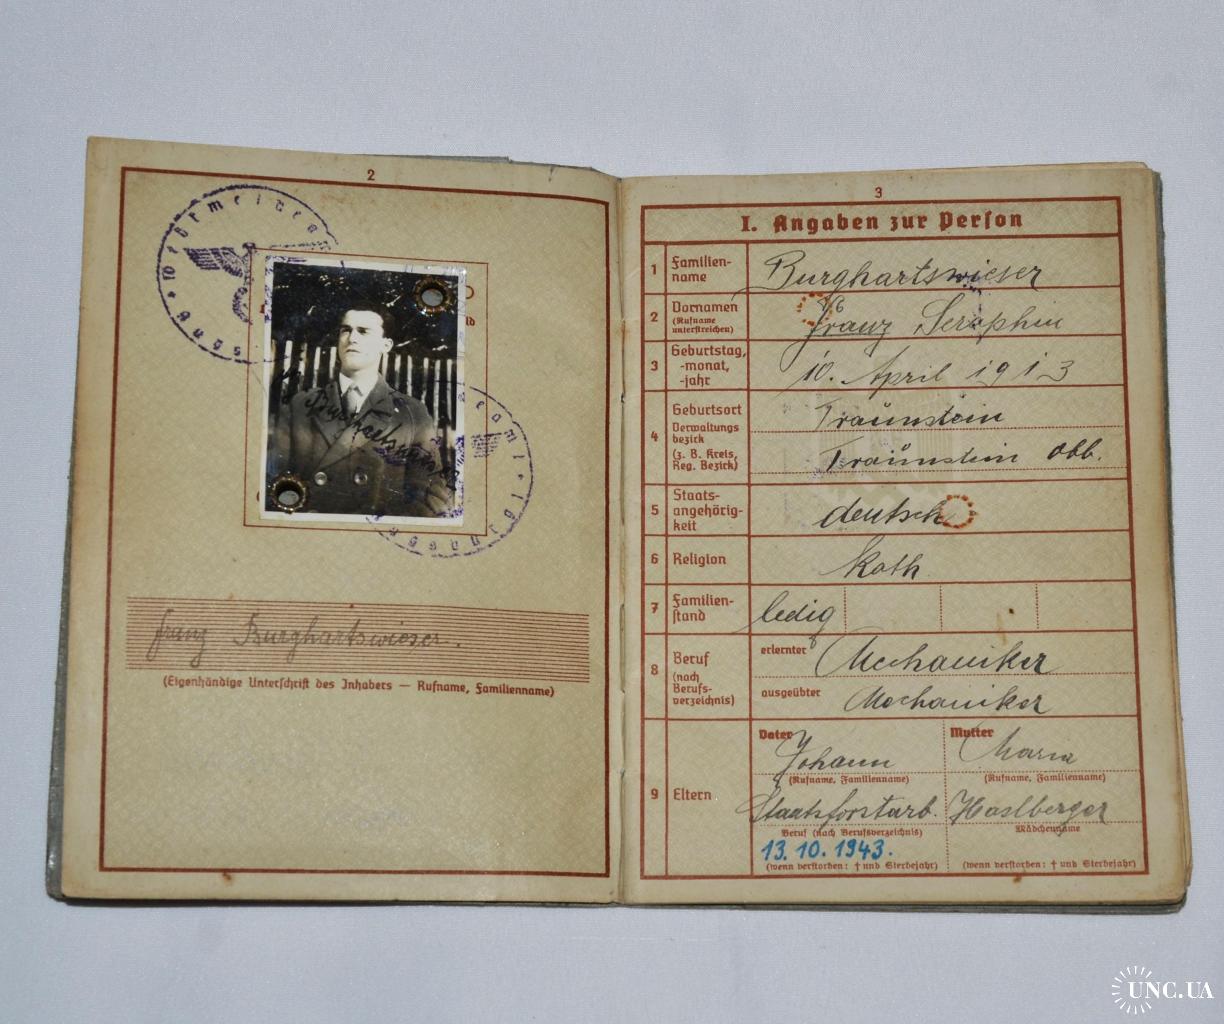 2
Burghartswieser
Franz Burghartswieser.
(Eigenhändige Unterschrift des Inhabers — Rufname, Familienname)
3
I. Angaben zur Person
1 Familien-
name
Burghartswieser
2 Vornamen
(Rufname
unterstreichen)
Franz Seraphin
3 Geburtstag,
-monat,
-jahr
10. April 1913
4 Geburtsort
Traunstein
Verwaltungs
bezirk
(z. B. Kreis,
Reg. Bezirk)
Traunstein Obb.
5 Staats-
angehörig-
keit
deutsch
6 Religion
kath.
7 Familien-
stand
ledig
8 Beruf
(nach
Berufs-
verzeichnis)
erlernter Mechaniker
ausgeübter Mechaniker
9 Eltern
Vater Mutter
Johann Maria
(Rufname, Familienname) (Rufname, Familienname)
Staatsforstarb. Haslberger
Beruf (nach Berufsverzeichnis) Mädchenname
13. 10. 1943.
(wenn verstorben: † und Sterbejahr) (wenn verstorben: † und Sterbejahr)
UNC.UA